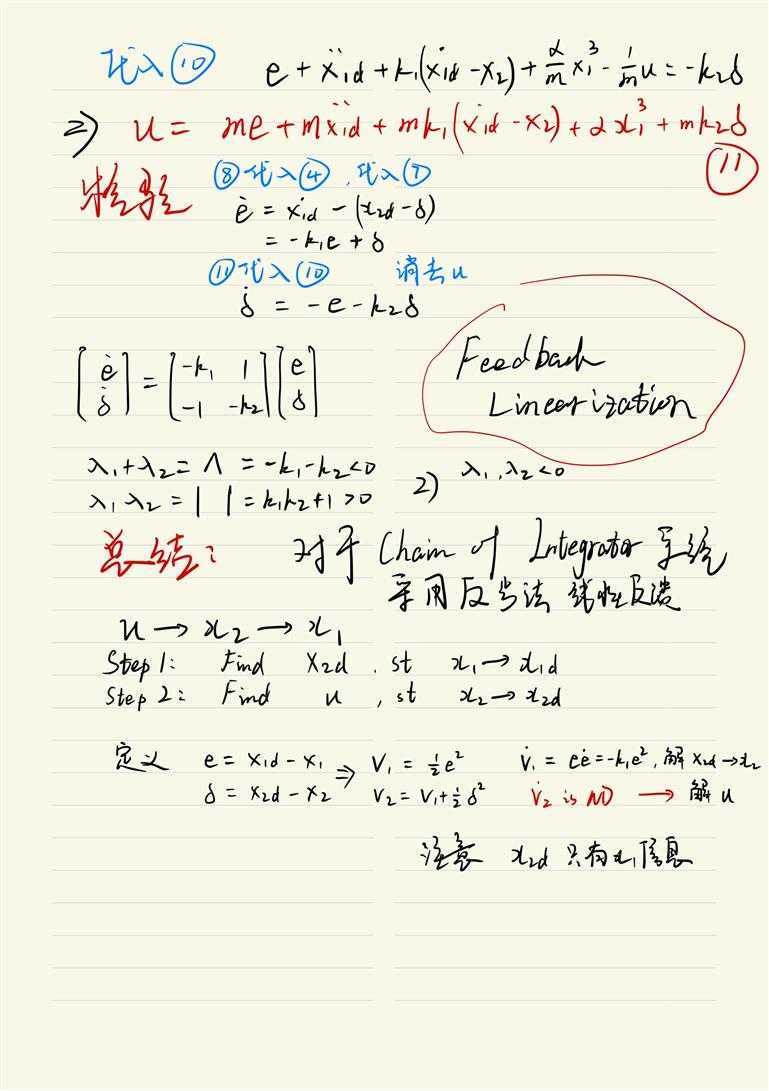 代入⑩ e + ẍ1d + k1(ẋ1d - x2) + α/m x1³ - 1/m u = -k2δ
=> u = me + mẍ1d + mk1(ẋ1d - x2) + αx1³ + mk2δ
⑪
检验 ⑧代入④,代入⑦
ė = ẋ1d - (x2d - δ)
= -k1e + δ
⑪代入⑩ 消去u
δ̇ = -e - k2δ
[ė δ̇] = [-k1 1 -1 -k2][e δ]
Feedback
Linearization
λ1+λ2 = \ = -k1-k2<0
λ1λ2 = | | = k1k2+1>0 => λ1,λ2<0
总结: 对于 Chain of Integrator 系统
采用反步法 线性反馈
u → x2 → x1
Step 1: Find x2d, st x1 → x1d
Step 2: Find u, st x2 → x2d
定义 e = x1d - x1 => V1 = ½e² V̇1 = eė = -k1e², 解 x2d → x2
δ = x2d - x2 V2 = V1 + ½δ² V̇2 is ND → 解 u
注意 x2d 只有x1信息